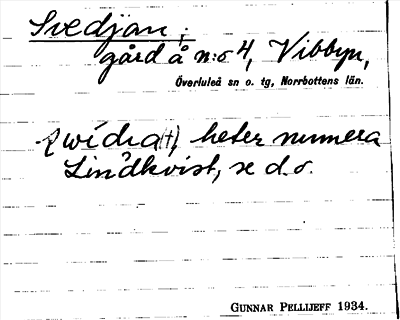 Svedjan;
gård å n:o 4, Vibbyn,
Överluleå sn o. tg, Norrbottens län.
heter numera
Lindkvist, se d. o.
GUNNAR PELLIJEFF 1934.